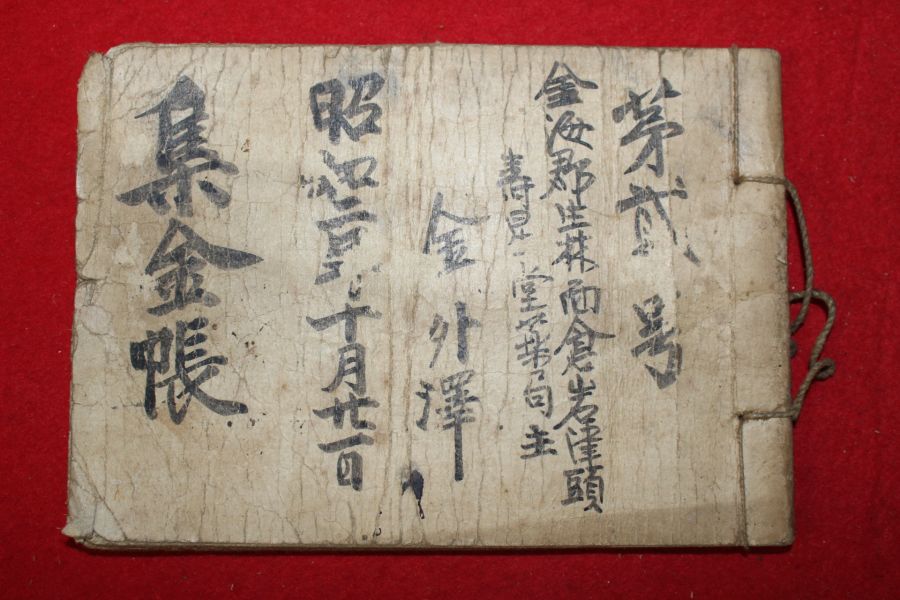 第貳号
金海郡生林面倉岩津頭
壽昌堂薬局主
金外澤
昭和二年十月廿一日
集金帳